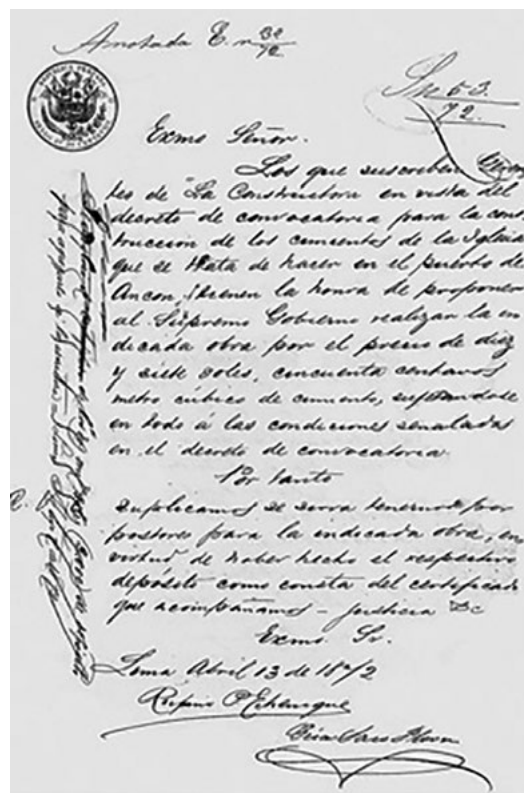 Anotada E. n 32/72
Sn 53.
72.
Exmo Señor.
Los que suscriben
tes de "La Constructora en vista del
decreto de convocatoria para la cons
truccion de los cimientos de la Iglesia
que se trata de hacer en el puerto de
Ancon, tienen la honra de proponer
al Supremo Gobierno realizar la in
dicada obra por el precio de diez
y siete soles, cincuenta centavos
metro cúbico de cimiento, sujetandose
en todo á las condiciones señaladas
en el decreto de convocatoria.
Por tanto
suplicamos se sirva tenernos por
postores para la indicada obra, en
virtud de haber hecho el respectivo
depósito como consta del certificado
que acompañamos - Justicia &c
Exmo. Sr.
Lima Abril 13 de 1872
Rufino P Echenique